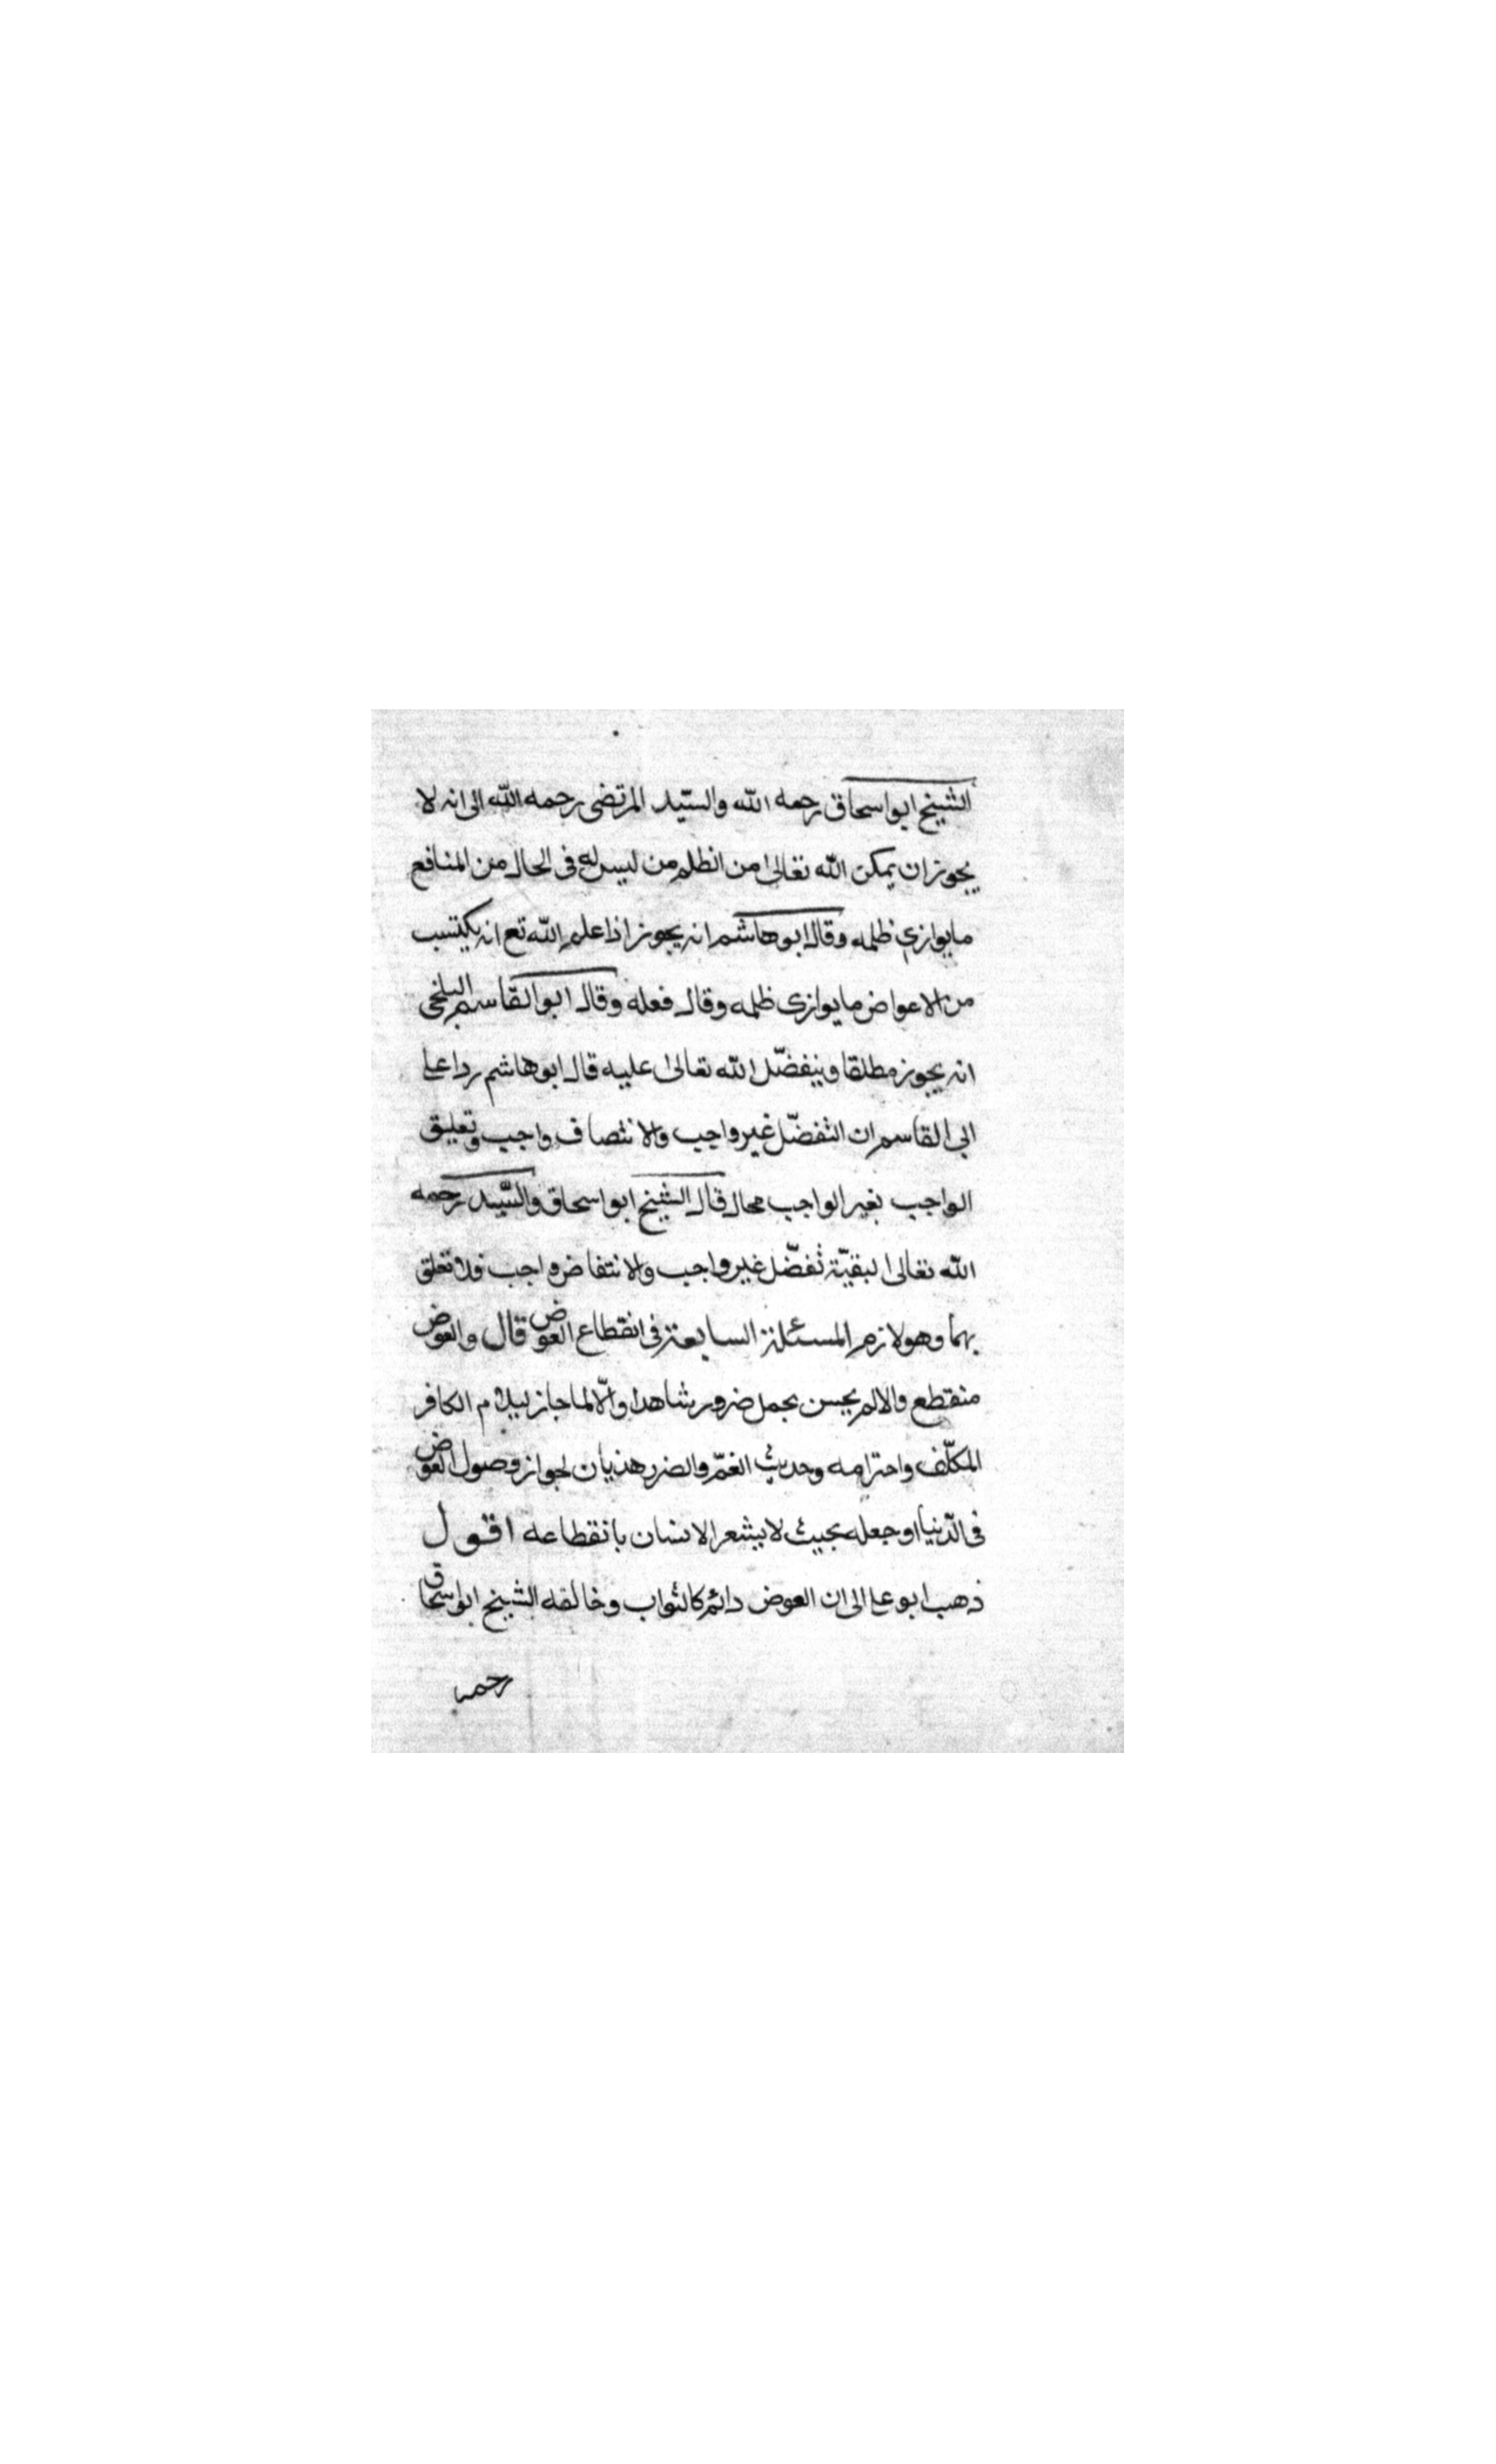 الشيخ ابو اسحاق رحمه الله والسّيد المرتضى رحمه الله الى انه لا
يجوز ان يمكن الله تعالى من انظلم من ليس له فى الحال من المنافع
ما يوازى ظلمه وقال ابو هاشم انه يجوز اذا علم الله تع انه يكتسب
من الاعواض ما يوازى ظلمه وقال فعله وقال ابو القاسم البلخى
انه يجوز مطلقا ويتفضّل الله تعالى عليه قال ابو هاشم ردا على
ابى القاسم ان التفضّل غير واجب والانتصاف واجب وتعليق
الواجب بغير الواجب محال قال الشيخ ابو اسحاق والسّيد رحمه
الله تعالى لبقيّة تفضّل غير واجب والانتفاض واجب فلا تعلق
بهما وهو لازم المسئلة السابعة فى انقطاع العوض قال والعوض
منقطع والالم يحسن بحمل ضرور شاهدا والّا لما جاز ايلام الكافر
المكلّف واحترامه وحديث الغمّ والضرر هذيان لجواز وصول العوض
فى الدّنيا او جعله بحيث لا يشعر الانسان بانقطاعه اقول
ذهب ابو على الى ان العوض دائم كالثواب وخالفه الشيخ ابو اسحاق
رحمه